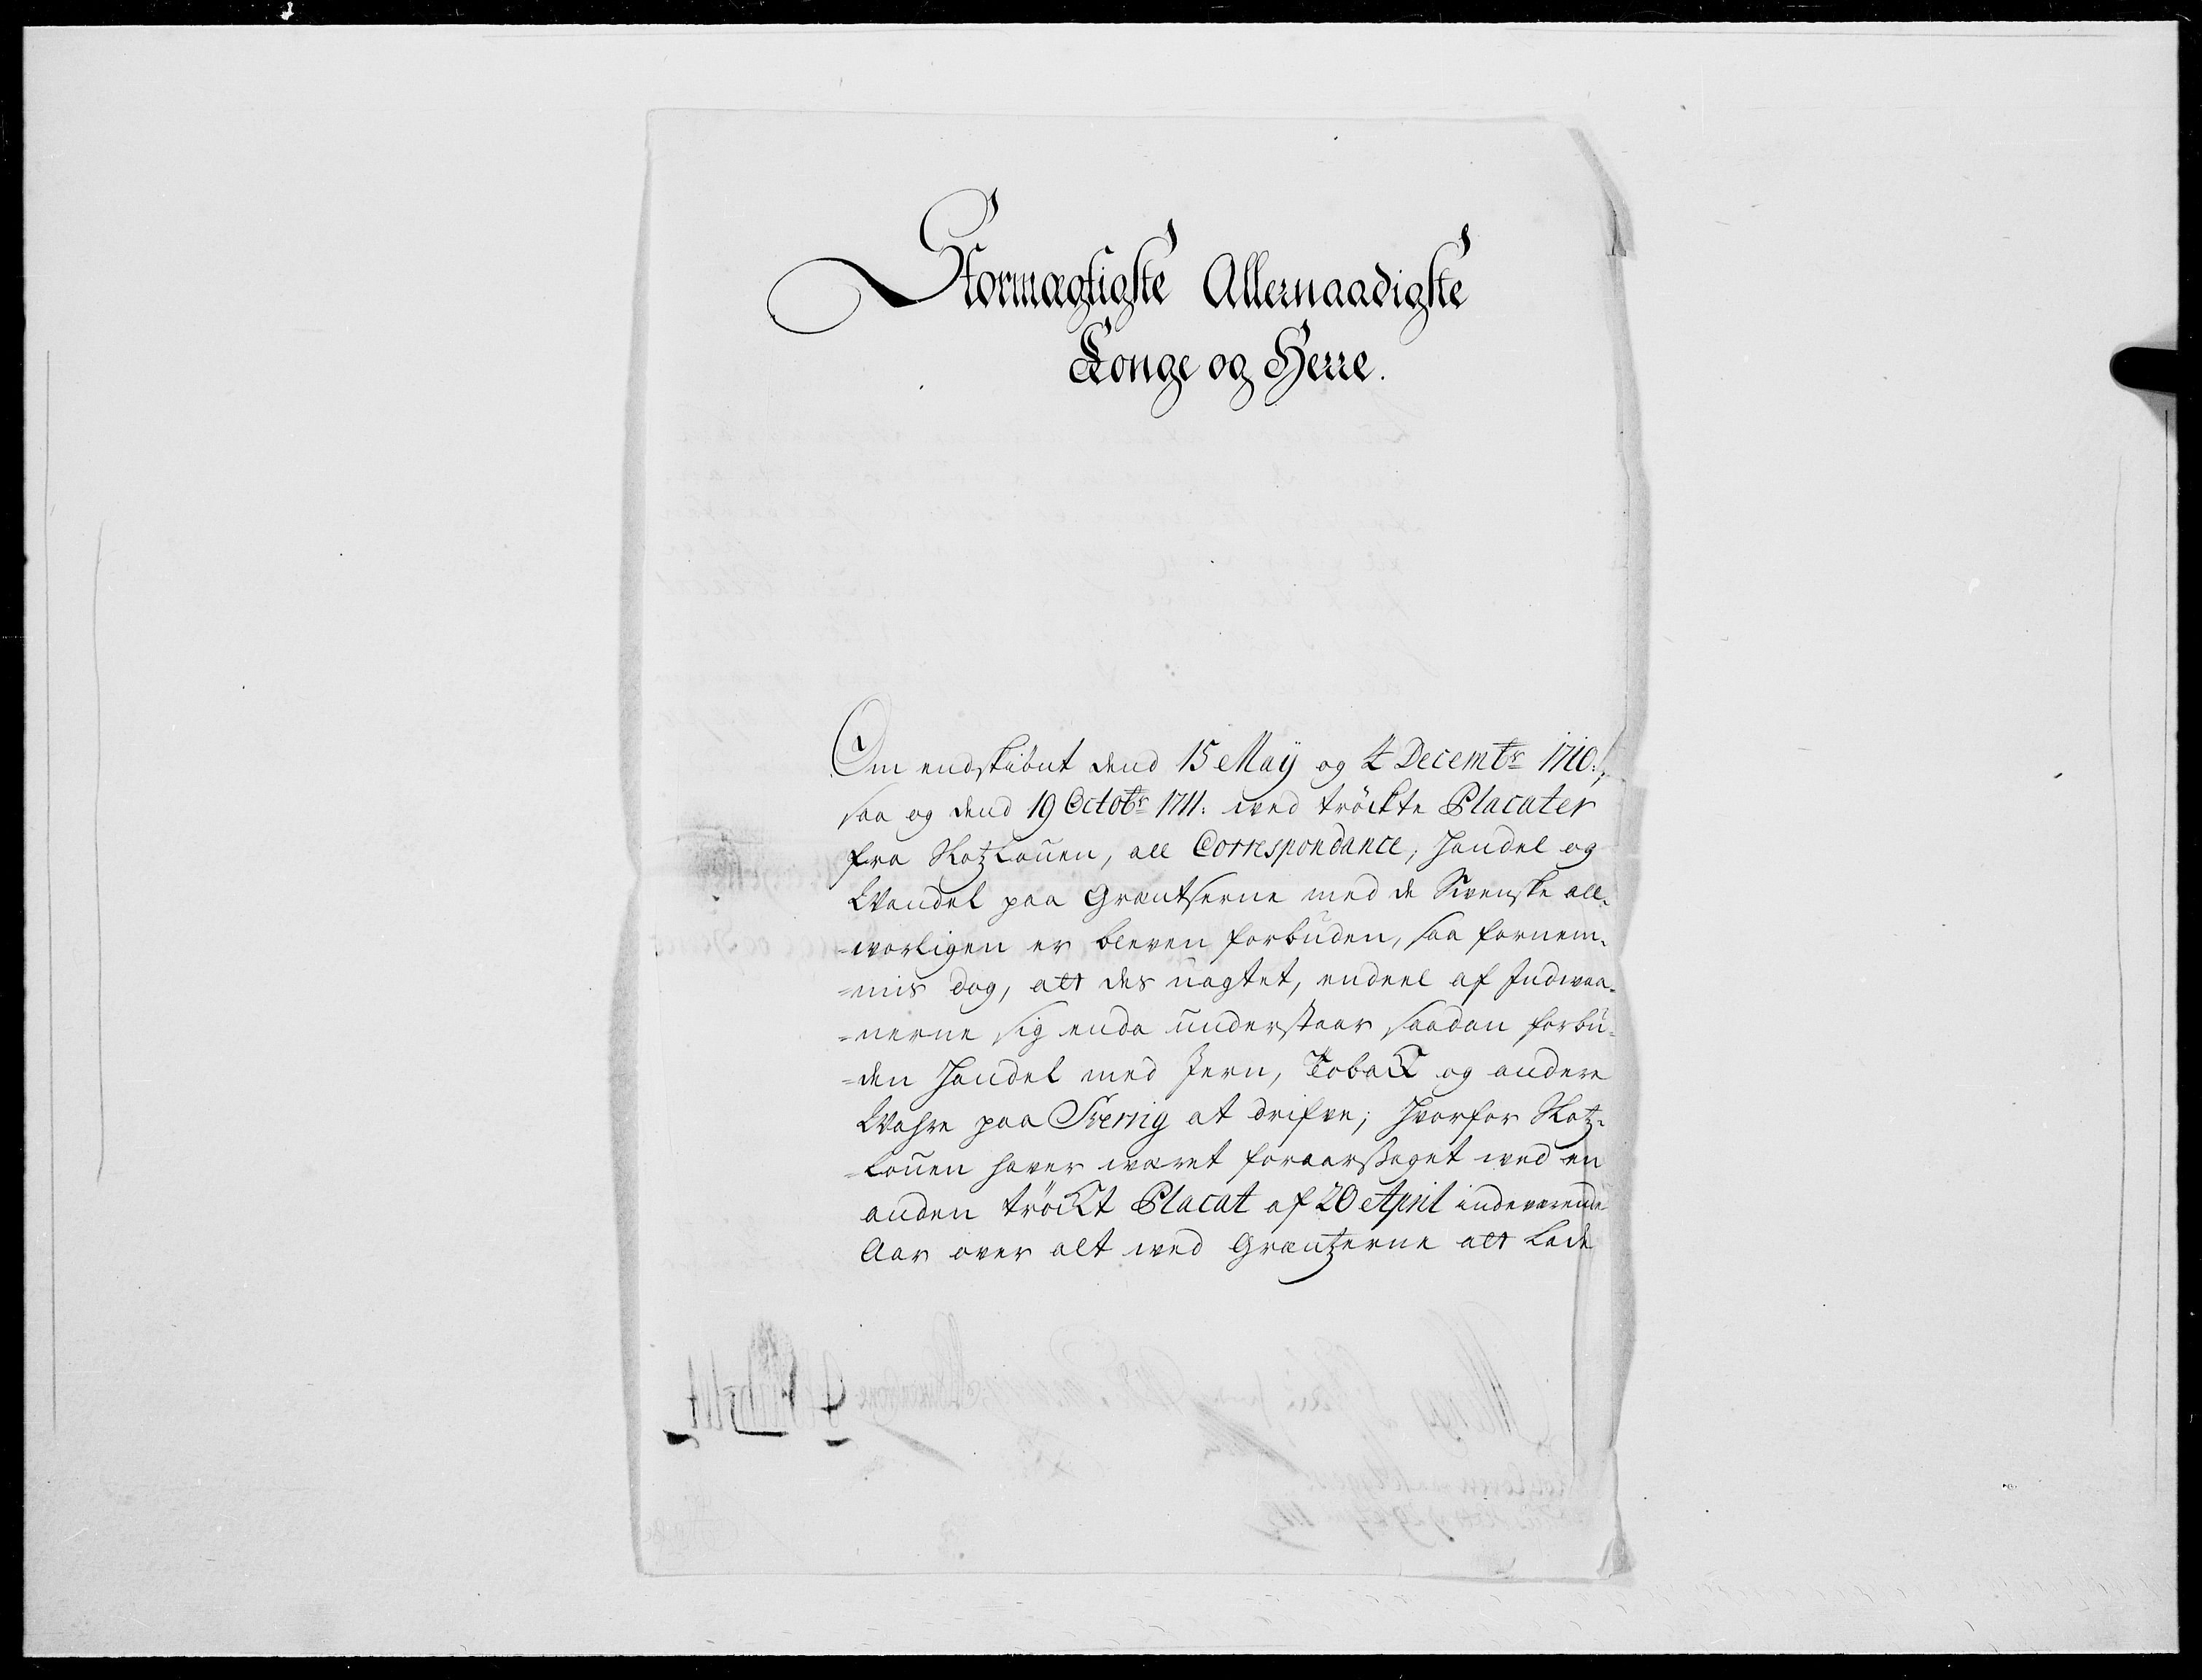 Stormægtigste Allernaadigste
Konge og Herre.
Om endskiönt dend 15 Maÿ og 4 Decembr 1710.,
saa og dend 19 Octobr 1711. ved tröckte Placater
fra Slotzlouen, all Correspondance, Handel og
Wandel paa Græntserne med de Svenske all-
=worligen er bleven forbuden, saa fornem-
=mis dog, att des uagtet, endeel af Indwaa-
=nerne sig enda understaar saadan forbu-
=den Handel med Jern, Toback og andere
Wahre paa Sverrig at drifve; hvorfor Slotz-
=louen haver waret foraarsaget ved en
anden tröckt Placat af 20 April indeværende
Aar over alt ved Græntzerne att lade